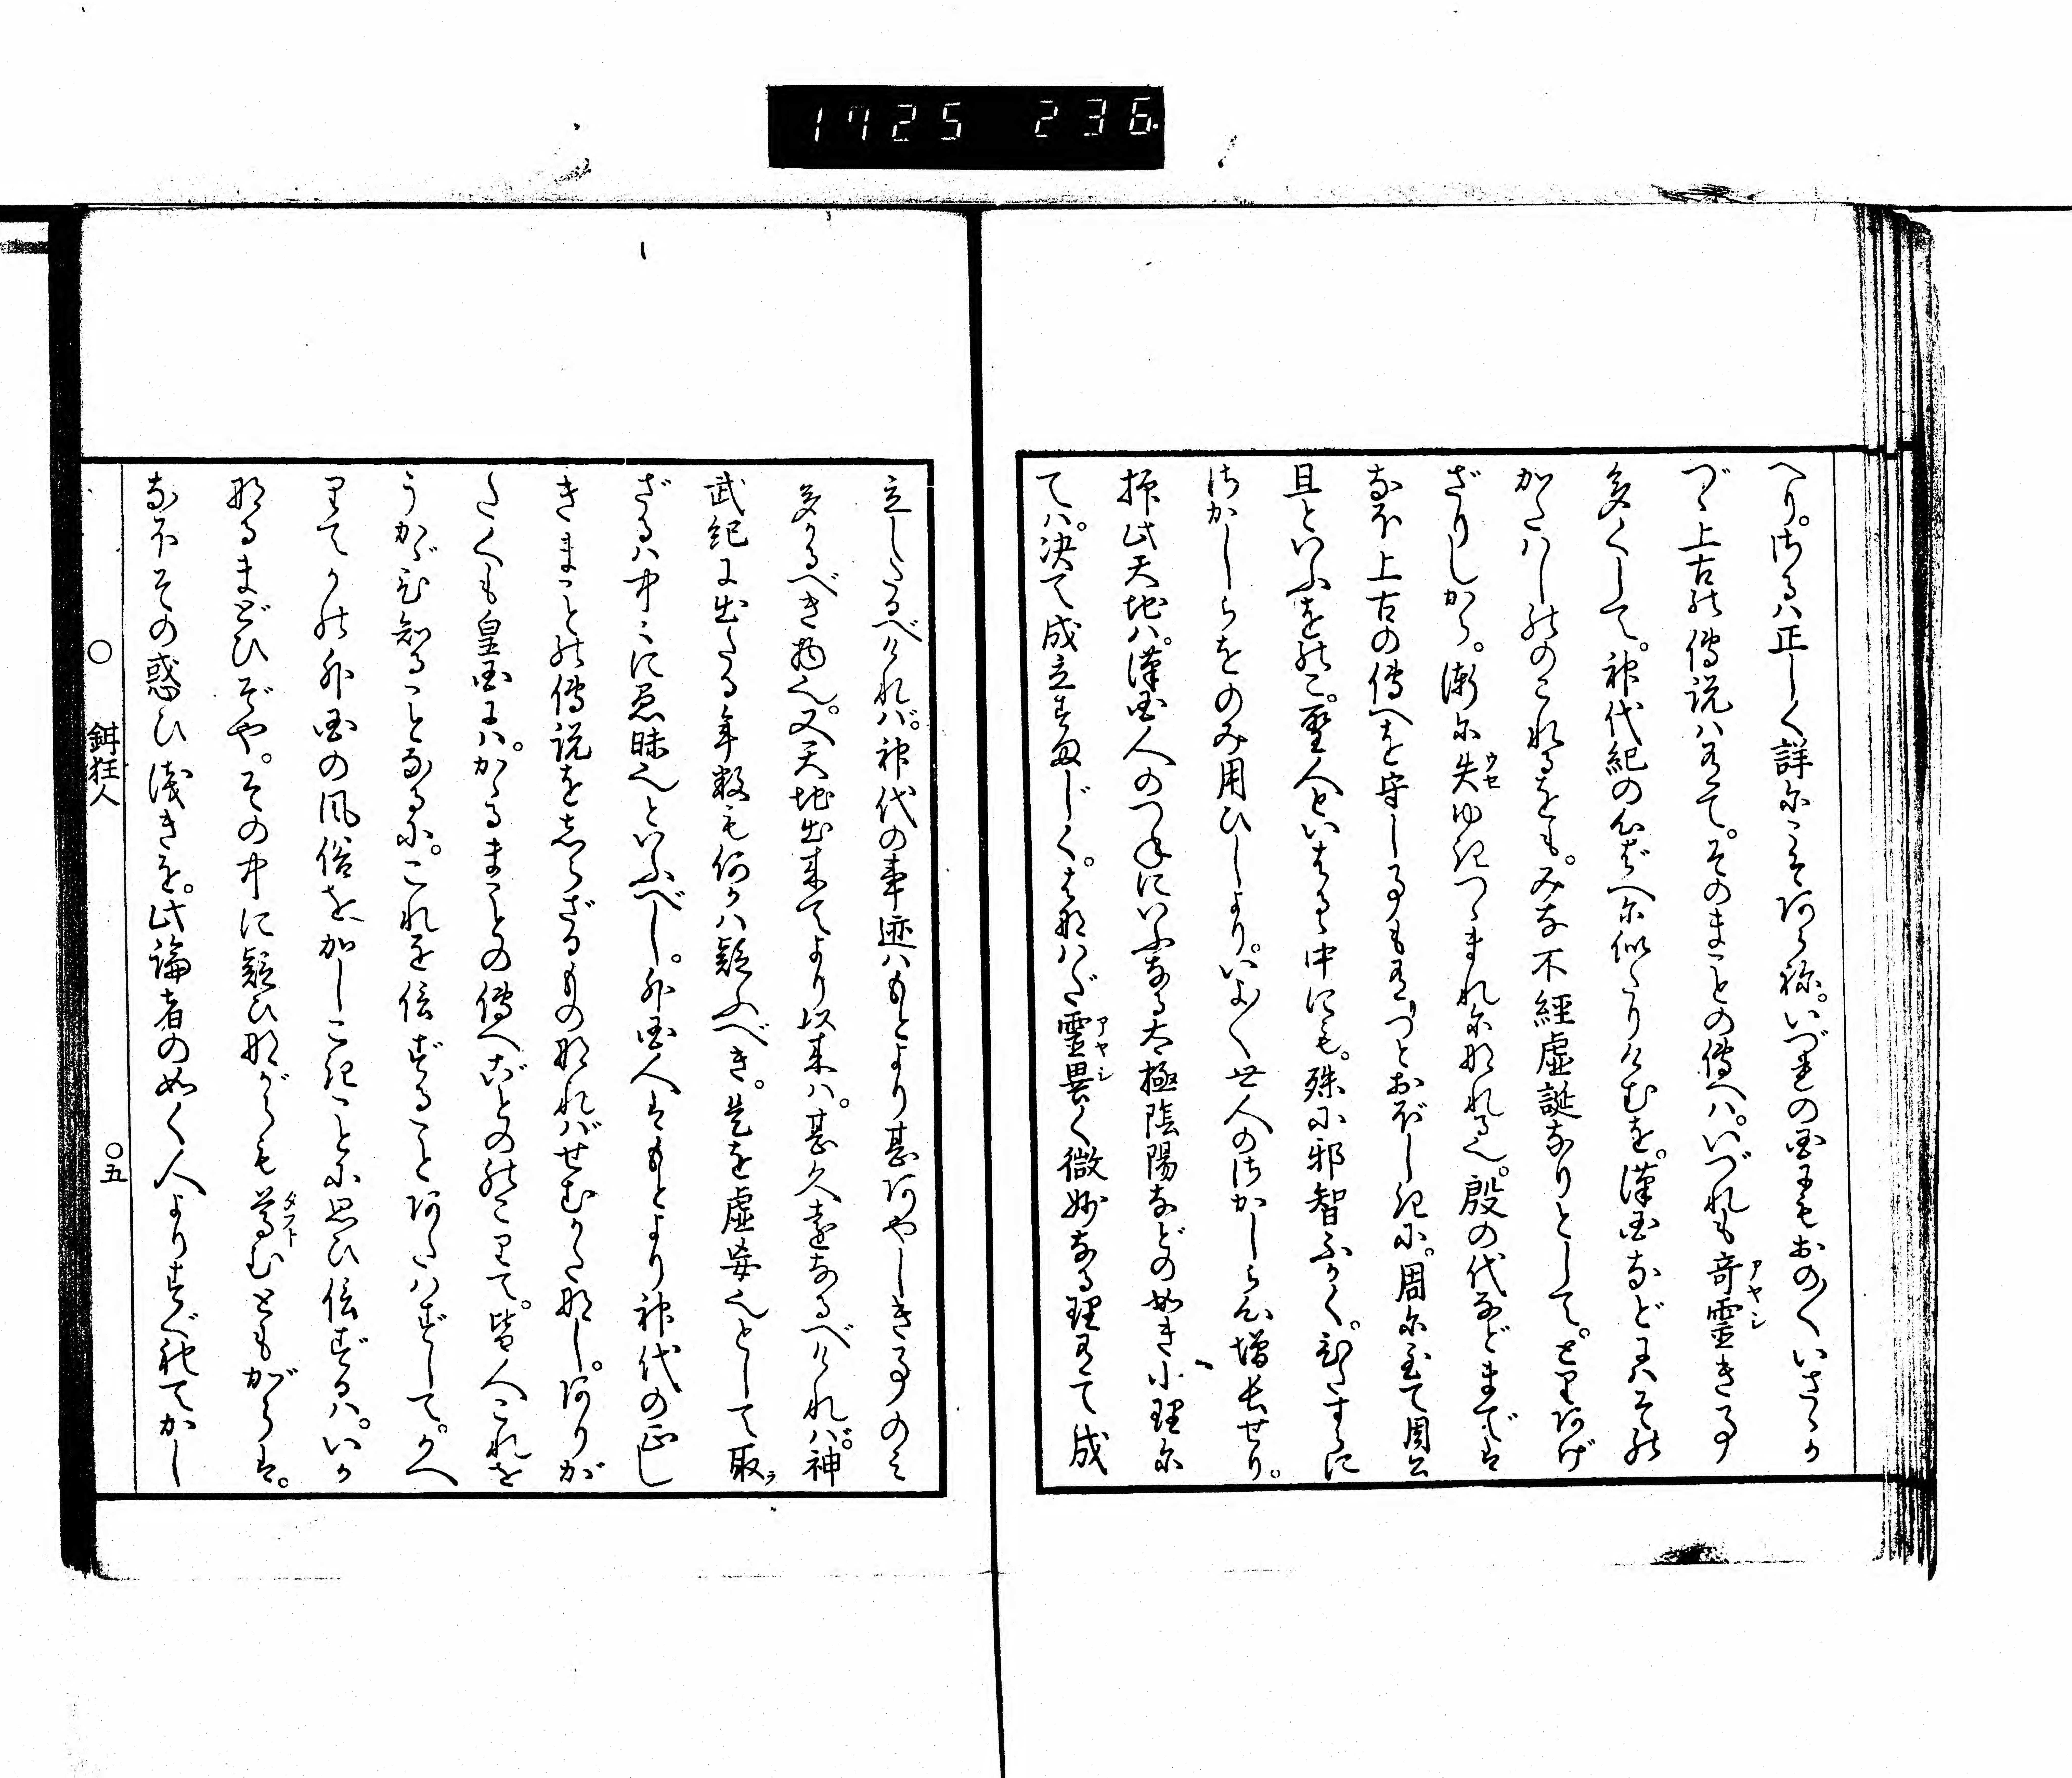 1725 236
へり。さるハ正しく詳にこそあらね。いづれの国にもおの〳〵いさゝか
づゝ上古の傳説ハ有て。そのまことの傳へハ。いづれも奇霊き事
多くして。神代紀の心ばへに似たりけむを。漢国などにハその
かたハしのこれるをも。みな不經虚誕なりとして。とりあげ
ざりしから。漸に失ゆきつゝまれになれる也。殷の代などまでは
なほ上古の傳へを守し事も有つとおぼしきに。周に至て周公
旦といふをのこ。聖人といはるゝ中にも。殊に邪智ふかく。ひたすらに
さかしらをのみ用ひしより。いよ〳〵世人のさかしら心増長せり。
抑此天地ハ。漢国人のつねにいふなる太極陰陽などの如き小理に
てハ。決て成立すまじく。はなハだ霊異く微妙なる理有て成
立したるべけれバ。神代の事迹ハもとより甚あやしき事のミ
多かるべき物也。又天地出来てより以来ハ。甚久遠なるべけれバ。神
武紀に出たる年数も何かハ疑ふべき。是を虚妄也として取
ざるハ中〻に愚昧也といふべし。外国人はもとより神代の正し
きまことの傳説をしらざるものなれバせむかたなし。ありが
たくも皇国にハ。かゝるまことの傳へごとのきこりて。皆人これを
うかゞひ知ることなるに。これを信ずることあたハずして。かへ
りてかの外国の風俗を加しこきことに思ひ信ずるハ。いか
なるまどひぞや。その中に疑ひながらも尊むともがらは。
なほその惑ひ浅きを。此論者の如く人よりすぐれてかし
アヤシ
ウセ
アヤシ
ラ
タフト
○ 鉗狂人 ○五